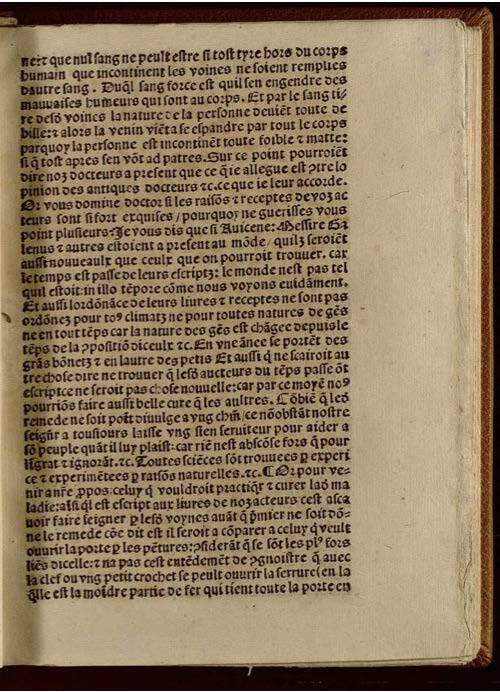 ne:⁊ que nul sang ne peult estre si tost tyre hors du corps
humain que incontinent les voines ne soient remplies
dautre sang. Duq̄l sang force est quil sen engendre des
mauuaises humeurs qui sont au corps. Et par le sang ti-
re desd̄ voines la nature de la personne deuiēt toute de
bille:⁊ alors la venin viēt a se espandre par tout le corps
parquoy la personne est incontinēt toute foible ⁊ matte:
si q̄ tost apres sen vōt ad patres. Sur ce point pourroiēt
dire noz docteurs a present que ce q̄ ie allegue est ꝯtre lo
pinion des antiques docteurs ⁊c. ce que ie leur accorde.
Or vous domine doctor si les raisōs ⁊ receptes de voz ac
teurs sont si fort exquises / pourquoy ne guerisses vous
point plusieurs: Je vous dis que si Auicene: Messire Ga
lenus ⁊ autres estoient a present au mōde / quilz seroiēt
aussi nouueaulx que ceulx que on pourroit trouuer. car
le temps est passe de leurs escriptz: le monde nest pas tel
quil estoit: in illo tēpore cōme nous voyons euidāment.
Et aussi lordōnāce de leurs liures ⁊ receptes ne sont pas
ordōnez pour toꝰ climatz ne pour toutes natures de gēs
ne en tout tēps car la nature des gēs est chāgee depuis le
tēps de la ꝯpositiō diceulx ⁊c. En vne ānee se portēt des
grās bōnetz ⁊ en lautre des petis Et aussi q̄ ne scairoit au
tre chose dire ne trouuer q̄ lesd̄ aucteurs du tēps passe ōt
escript ce ne seroit pas chose nouuelle: car par ce moyē noꝰ
pourriōs faire aussi belle cure q̄ les aultres. Cōbiē q̄ led̄
remede ne soit poīt diuulge a vng chūn / ce nōobstāt nostre
seignr̄ a tousiours laisse vng sien seruiteur pour aider a
sō peuple quāt il luy plaist: car riē nest abscōse fors q̄ pour
līgrat ⁊ ignorāt. ⁊c. Toutes sciēces sōt trouuees ꝑ experi
ce ⁊ experimētees ꝑ raisōs naturelles. ⁊c. ¶ Or pour ve-
nir a nr̄e ꝓpos: celuy q̄ vouldroit practiqr̄ ⁊ curer lad̄ ma
ladie: aīsi q̄l est escript aux liures de noz acteurs cest asca
uoir faire seigner ꝑ lesd̄ voynes auāt q̄ p̄mier ne soit dō-
ne le remede cōe dit est il seroit a cōparer a celuy q̄ veult
ouurir la porte ꝑ les pētures: ꝯsiderāt q̄ se sōt les plꝰ fors
liēs dicelle: ⁊ na pas cest entēdemēt de ꝯgnoistre q̄ auec
la clef ou vng petit crochet se peult ouurir la serrure (en la
q̄lle est la moīdre partie de fer qui tient toute la porte en